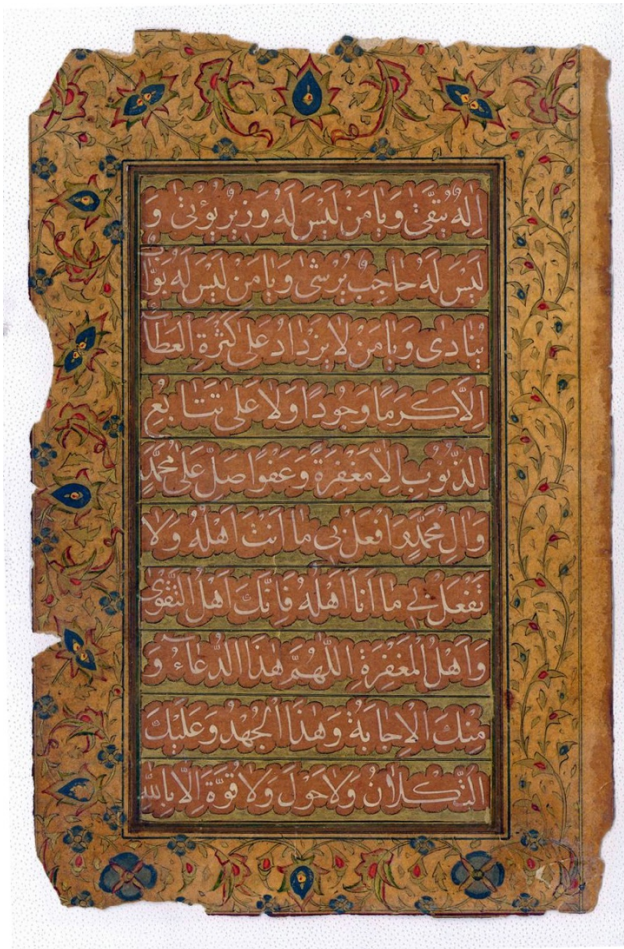 اِلهٌ يُتَّقىٰ وَيا مَنْ لَيْسَ لَهُ وَزيرٌ يُؤْتىٰ وَ
لَيْسَ لَهُ حاجِبٌ يُرْشىٰ وَيا مَنْ لَيْسَ لَهُ بَوّابٌ
يُنادىٰ وَيا مَنْ لا يَزْدادُ عَلىٰ كَثْرَةِ العَطآءِ
اِلاّ كَرَمًا وَجُودًا وَلا عَلىٰ تَتابُعِ
الذُّنُوبِ اِلاّ مَغْفِرَةً وَعَفْوًا صَلِّ عَلىٰ مُحَمَّدٍ
وَالِ مُحَمَّدٍ وَافْعَلْ بي ما اَنْتَ اَهْلُهُ وَلا
تَفْعَلْ بي ما اَنَا اَهْلُهُ فَاِنَّكَ اَهْلُ التَّقْوىٰ
وَاَهْلُ الْمَغْفِرَةِ اَللّٰهُمَّ هٰذَا الدُّعآءُ وَ
مِنْكَ الْاِجابَةُ وَهٰذَا الْجُهْدُ وَعَلَيْكَ
التُّكْلانُ وَلا حَوْلَ وَلا قُوَّةَ اِلاّ بِاللّٰهِ